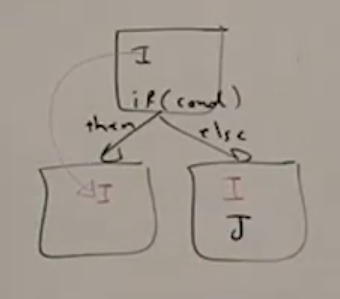 I
if(cond)
then else
I I
J